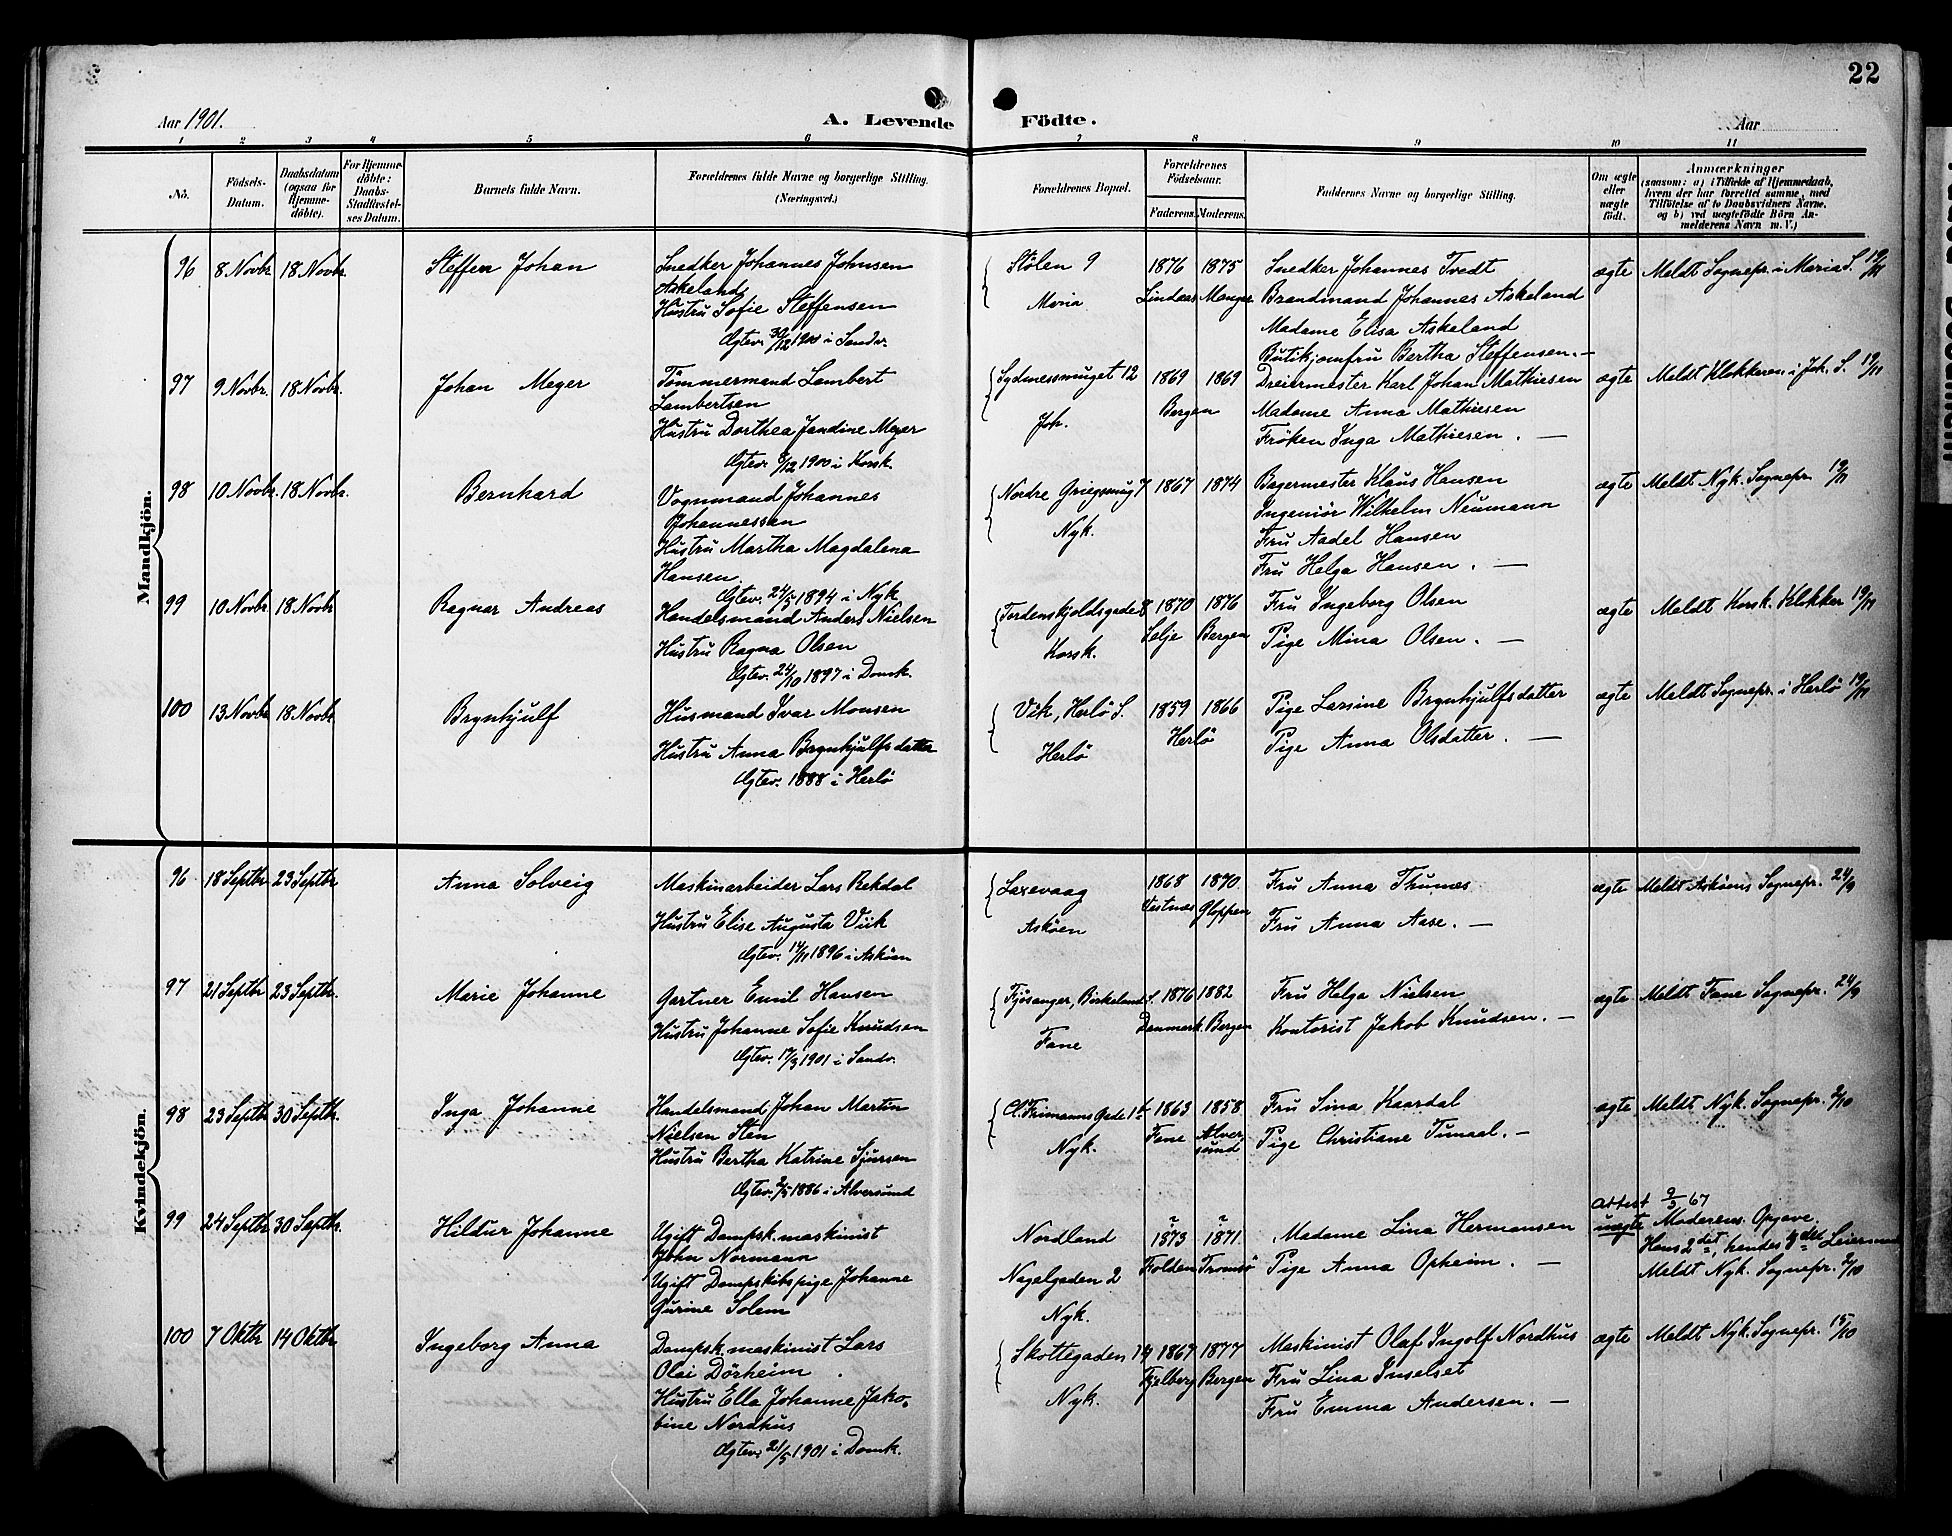 22
Aar 1901.
A. Levende Födte.
Aar
1 2 3 4 5 6 7 8 9 10 11
No.
Födsels-Datum.
Daabsdatum (ogsaa for Hjemmedöbte).
For Hjemmedöbte: Daabs-Stadfæstelses Datum.
Barnets fulde Navn.
Forældrenes fulde Navne og borgerlige Stilling. (Næringsvei.)
Forældrenes Bopæl.
Forældrenes Födselsaar.
Faderens. Moderens.
Faddernes Navne og borgerlige Stilling.
Om ægte eller uægte födt.
Anmærkninger
(saasom: a) i Tilfælde af Hjemmedaab,
hvem der har forrettet samme, med
Tilföielse af to Daabsvidners Navne,
og b) ved uægtefödte Börn Anmelderens Navn m. V.)
Mandkjön.
96 8 Novbr. 18 Novbr. Steffen Johan
Snedker Johannes Johnsen
Askeland
Hustru Sofie Steffensen
Ægtev. 30/12 1900 i Sandv.
Stölen 9
Maria
1876 1875
Lindaas Manger
Snedker Johannes Tvedt
Brandmand Johannes Askeland
Madame Elisa Askeland
Butikjomfru Bertha Steffensen. —
ægte Meldt Sognepr. i Maria S. 19/11
97 9 Novbr. 18 Novbr. Johan Meyer
Tömmermand Lambert
Lambertsen
Hustru Dorthea Jandine Meyer
Ægtev. 8/12 1900 i Korsk.
Sydnessmuget 12
Joh.
1869 1869
Bergen
Dreiermester Karl Johan Mathiesen
Madame Anna Mathiesen
Fröken Inga Mathiesen. —
ægte Meldt Klokkeren i Joh. S. 19/11
98 10 Novbr. 18 Novbr. Bernhard
Vognmand Johannes
Johannessen
Hustru Martha Magdalena
Hansen.
Ægtev. 24/5 1894 i Nyk
Nordre Griegsmug 7
Nyk.
1867 1874
Bagermester Klaus Hansen
Ingeniör Wilhelm Neumann
Fru Aadel Hansen
Fru Helga Hansen. —
ægte Meldt Nyk. Sognepr. 19/11
99 10 Novbr. 18 Novbr Ragnar Andreas
Handelsmand Anders Nielsen
Hustru Ragna Olsen
Ægtev. 24/10 1897 i Domk.
Tordenskjoldsgade 8
Korsk.
1870 1876
Selje Bergen
Fru Ingeborg Olsen
Pige Mina Olsen. —
ægte Meldt Korsk. Klokker 19/11
100 13 Novbr. 18 Novbr. Brynhjulf
Husmand Ivar Monsen
Hustru Anna Brynhjulfsdatter
Ægtev. 1888 i Herlö
Vik, Herlö S.
Herlö
1859 1866
Herlö
Pige Larsine Brynhjulfsdatter
Pige Anna Olsdatter. —
ægte Meldt Sognepr. i Herlö 19/11
Kvindekjön.
96 18 Septbr. 23 Septbr Anna Solveig
Maskinarbeider Lars Rekdal
Hustru Elise Augusta Viik
Ægtev. 14/11 1896 i Asköen
Laxevaag
Asköen
1868 1870.
Vestnæs Gloppen
Fru Anna Thunæs
Fru Anna Aase. —
ægte Meldt Asköens Sognepr. 24/9
97 21 Septbr 23 Septbr. Marie Johanne
Gartner Emil Hansen
Hustru Johanne Sofie Knudsen
Ægtev. 17/3 1901 i Sandv.
Fjösanger, Birkeland S.
Fane
1876 1882
Danmark. Bergen
Fru Helga Nielsen
Kontorist Jakob Knudsen. —
ægte Meldt Fane Sognepr. 24/9
98 23 Septbr 30 Septbr. Inga Johanne
Handelsmand Johan Martin
Nielsen Sten
Hustru Bertha Katrine Sjursen
Ægtev. 2/5 1886 i Alversund
Cl. Frimanns Gade 1b
Nyk.
1863 1858
Fane Alversund
Fru Sina Kaardal
Pige Christiane Tunaal. —
ægte Meldt Nyk. Sognepr. 2/10
99 24 Septbr 30 Septbr. Hildur Johanne
Ugift Dampsk. maskinist
John Normann
Ugift Dampskibspige Johanne
Gurine Solem
Nordland
Nagelgaden 2
Nyk.
? ?
1873 1871.
Folden Tromsö
Madame Lina Hermansen
Pige Anna Opheim. —
attest 9/3 67
uægte Moderens Opgave.
Hans 2det, hendes 4de Leiersmaal
Meldt Nyk. Sognepr. 2/10
100 7 Oktbr 14 Oktbr Ingeborg Anna
Dampsk. maskinist Lars
Olai Dörheim
Hustru Ella Johanne Jakobine Nordhus
Ægtev. 21/5 1901 i Domk.
Skottegaden 14
Nyk.
1867 1877
Fjelberg Bergen
Maskinist Olaf Ingolf Nordhus
Fru Lina Inselset
Fru Emma Andersen. —
ægte Meldt Nyk. Sognepr. 15/10